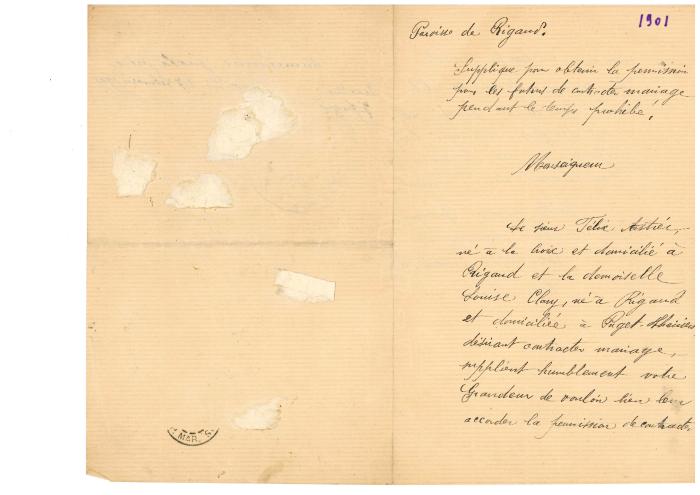 1901
Paroisse de Rigaud.
Supplique pour obtenir la permission
pour les futurs de contracter mariage
pendant le temps prohibé.
Monseigneur
Le sieur Félix
né à la Croix et domicilié à
Rigaud et la demoiselle
Louise Clary, né à Rigaud
et domiciliée à Puget-Théniers
désirant contracter mariage,
supplient humblement votre
Grandeur de vouloir bien leur
accorder la permission de contracter
MAR